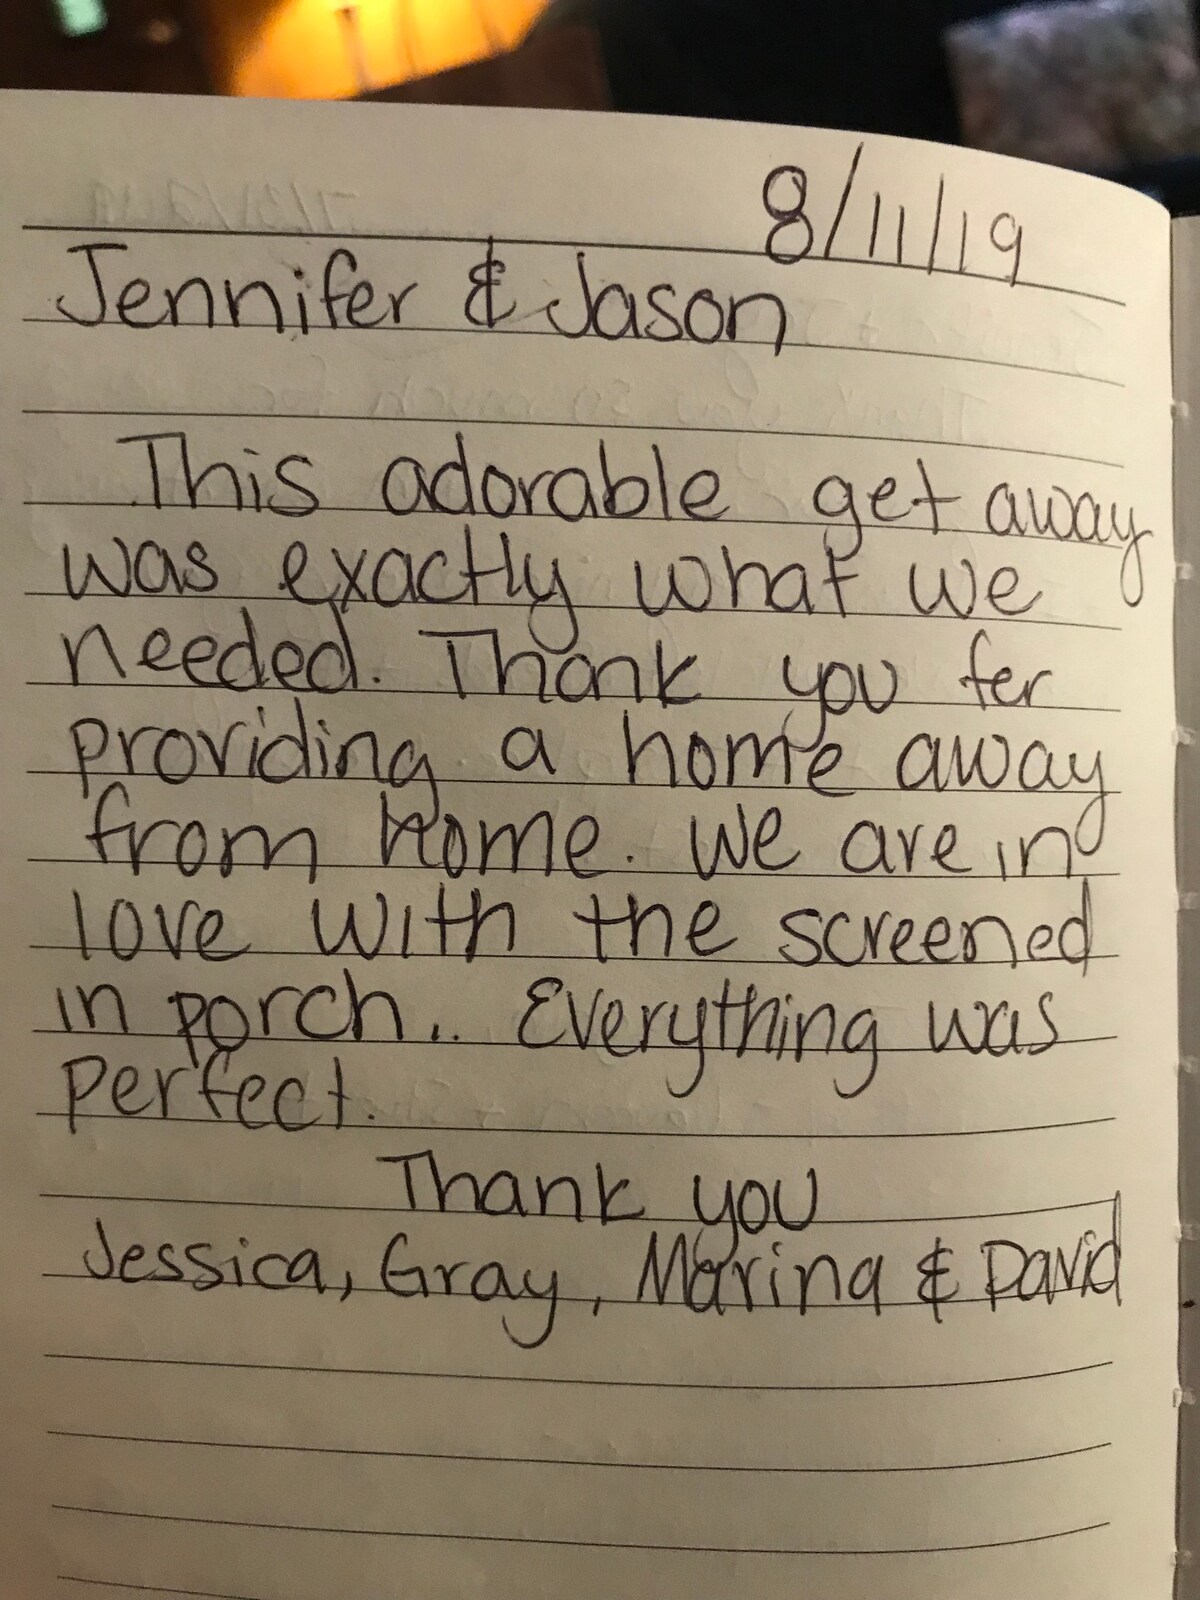 8/11/19
Jennifer & Jason
This adorable get away
was exactly what we
needed. Thank you for
providing a home away
from home. We are in
love with the screened
in porch... Everything was
perfect.
Thank you
Jessica, Gray, Marina & David